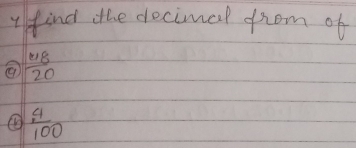 find the decimal from of
(a) 48/20
(b) 4/100